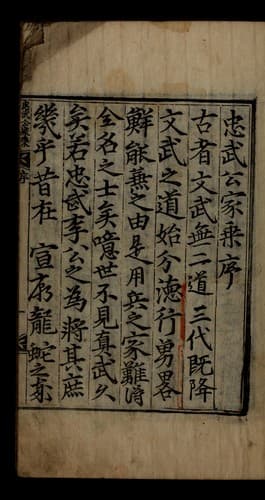 忠武公家乗序
古者文武無二道三代旣降
文武之道始分徳行勇畧
鮮能兼之由是用兵之家難得
全名之士矣噫世不見真武久
矣若忠武李公之為將其庶
幾乎昔在 宣廟龍蛇之東